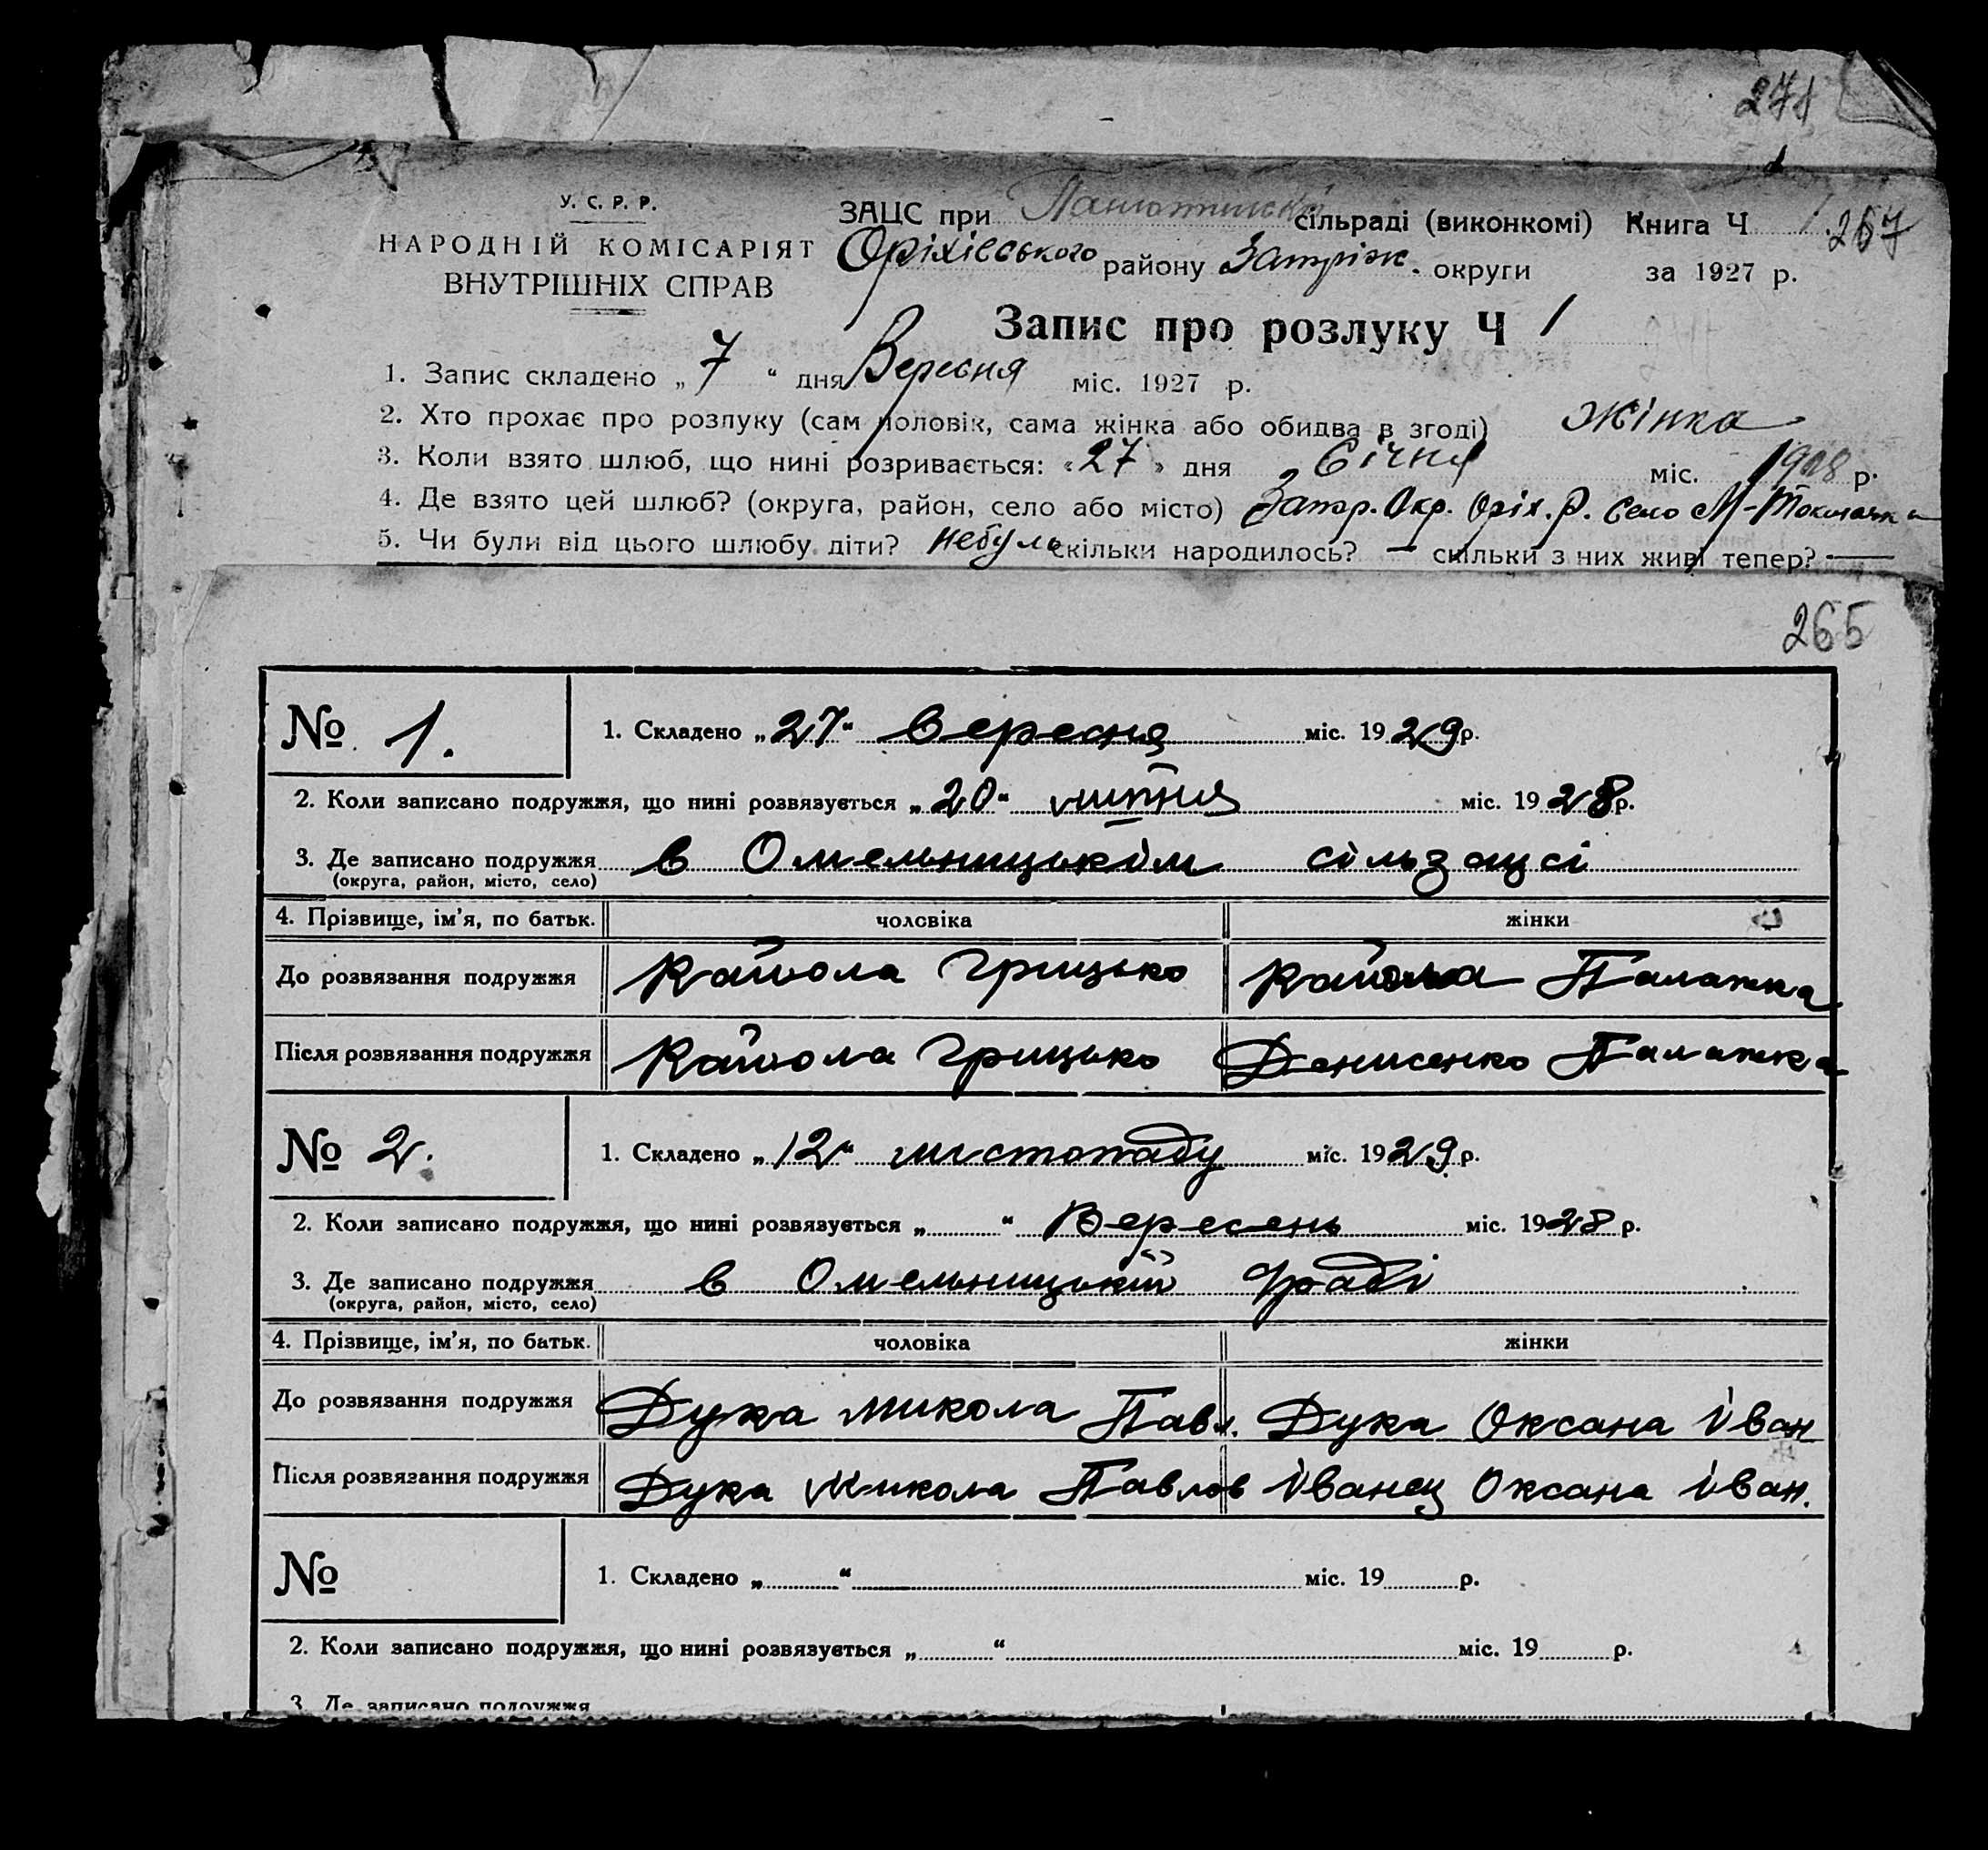 271
У. С. Р. Р.
НАРОДНІЙ КОМІСАРІЯТ
ВНУТРІШНІХ СПРАВ
ЗАЦС при сільраді (виконкомі) Книга Ч 1 267
Оріхівського району Запріж. округи за 1927 р.
Запис про розлуку Ч 1
1. Запис складено „ 7 “ дня Вересня міс. 1927 р.
2. Хто прохає про розлуку (сам чоловік, сама жінка або обидва в згоді) Жінка
3. Коли взято шлюб, що нині розривається: «27» дня Січня міс. 1908 р.
4. Де взято цей шлюб? (округа, район, село або місто) Запор. Окр. Оріх. Р. Село М-Токмачка
5. Чи були від цього шлюбу діти? небуль скільки народилось? — скільки з них живі тепер? —
265
№ 1. 1. Складено „27“ вересня міс. 1929 р.
2. Коли записано подружжя, що нині розвязується „20“ липня міс. 1928 р.
3. Де записано подружжя в Омельницькім сільзацсі
(округа, район, місто, село)
4. Прізвище, ім'я, по батьк. чоловіка жінки
До розвязання подружжя Грицько Палажка
Після розвязання подружжя Грицько Денисенко Палажка
№ 2. 1. Складено „12“ листопаду міс. 1929 р.
2. Коли записано подружжя, що нині розвязується „ “ Вересень міс. 1928 р.
3. Де записано подружжя в Омельницькій
(округа, район, місто, село)
4. Прізвище, ім'я, по батьк. чоловіка жінки
До розвязання подружжя Дука Микола Павл. Дука Оксана Іван
Після розвязання подружжя Дука Микола Павлов Іванец Оксана Іван.
№ 1. Складено „ “ міс. 19 р.
2. Коли записано подружжя, що нині розвязується „ “ міс. 19 р.
3. Де записано подружжя